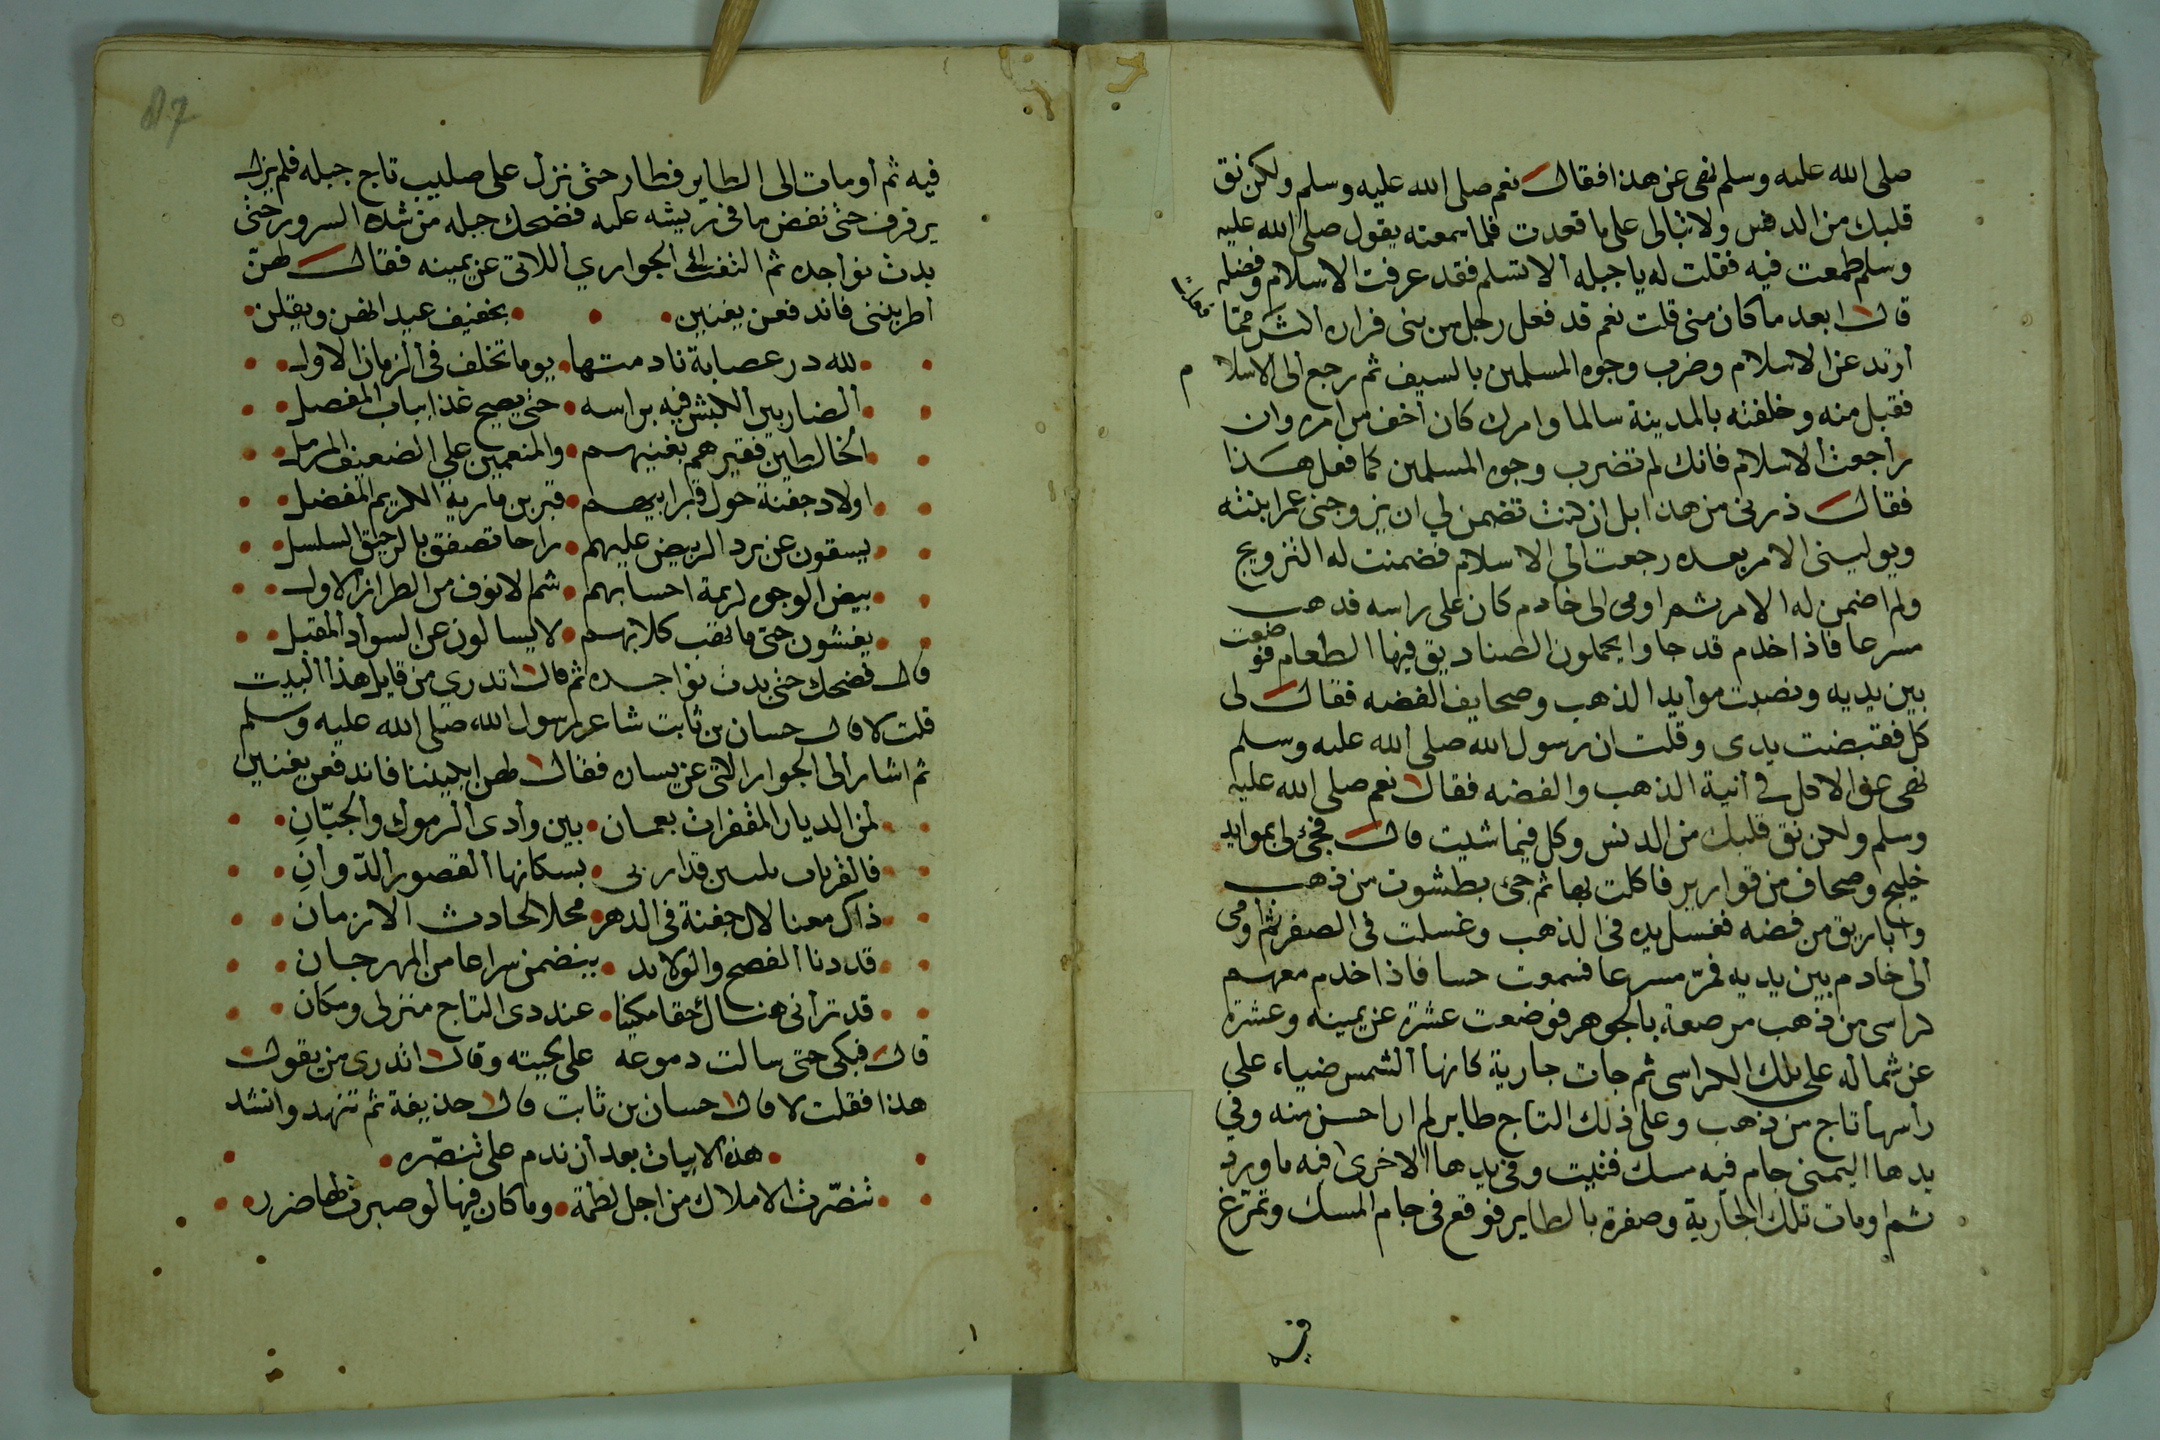 صلى الله عليه وسلم نهى عن هذا فقال نعم صلى الله عليه وسلم ولكن نق
قلبك من الدنس ولا تبالى على ما قعدت فلما سمعته يقول صلى الله عليه
وسلم طمعت فيه فقلت له يا جبله الا تسلم فقد عرفت الاسلام وفضله
قال ابعد ما كان منى قلت نعم قد فعل رجل من بنى فزاره اكثر مما
ارتد عن الاسلام وضرب وجوه المسلمين بالسيف ثم رجع الى الاسلام
فقبل منه وخلفته بالمدينة سالما وامرك كان أخف من امره وان
راجعت الاسلام فانك لم تضرب وجوه المسلمين كما فعل هذا
فقال ذرنى من هذا بل ان كنت تضمن لي ان يزوجنى عمر ابنته
ويولينى الامر بعده رجعت الى الاسلام فضمنت له التزويج
ولم اضمن له الامر ثم اومى الى خادم كان على راسه فذهب
مسرعا فاذا خدم قد جاوا يحملون الصناديق فيها الطعام فوضعت
بين يديه ونصبت موايد الذهب وصحايف الفضه فقال لى
كل فقبضت يدى وقلت ان رسول الله صلى الله عليه وسلم
نهى عن الاكل في آنية الذهب والفضه فقال نعم صلى الله عليه
وسلم ولكن نق قلبك من الدنس وكل فيما شيت قال فجئ لى بموايد
خليج وصحاف من قوارير فاكلت بها ثم جئ بطشوت من ذهب
واباريق من فضه فغسل يده فى الذهب وغسلت فى الصفر ثم اومى
الى خادم بين يديه فمر مسرعا فسمعت حسا فاذا خدم معهم
كراسى من ذهب مرصعة بالجوهر فوضعت عشرة عن يمينه وعشرة
عن شماله على تلك الكراسى ثم جات جارية كانها الشمس ضياء على
رأسها تاج من ذهب وعلى ذلك التاج طاير لم ار احسن منه وفي
يدها اليمنى جام فيه مسك فتيت وفى يدها الاخرى فيه ماورد
ثم اومات تلك الجارية وصفرة بالطاير فوقع فى جام المسك وتمرغ
فيه
فيه ثم أومات الى الطاير فطار حتى نزل على صليب تاج جبله فلم يزل
يرفرف حتى نفض ما فى ريشه عليه فضحك جبله من شدة السرور حتى
بدت نواجده ثم التفت الى الجواري اللاتى عن يمينه فقال لهن
أطربننى فاندفعن يغنين بخفيف عيدانهن ويقلن
لله در عصابة نادمتها يوما تخلف فى الزمان الاول
الضاربين الكبش فيه براسه حتى يصبح غدا بباب المفصل
الخالطين فقيرهم بغنيهم والمنعمين على الضعيف المرمل
اولاد جفنة حول قبر ابيهم قبر بن مارية الكريم المفضل
يسقون عن برد البريص عليهم راحا تصفق بالرحيق السلسل
بيض الوجوه كريمة احسابهم شم الانوف من الطراز الاول
يغشون حتى ما تهب كلابهم لا يسالون عن السواد المقبل
قال فضحك حتى بدت نواجده ثم قال اتدرى من قايل هذا البيت
قلت لا قال حسان بن ثابت شاعر رسول الله صلى الله عليه وسلم
ثم اشار الى الجوار التى عن يساره فقال لهن ابكيننا فاندفعن يغنين
لمن الديار المقفرات بعمان بين وأدى اليرموك والجبّانِ
بسكانها القصور الدّوانِ
ذاك معنا لال جفنة فى الدهر محلا لحادث الازمان
قد دنا الفصح والولايد ينضمن سراعا من المهرجان
قد ترانى هناك حقا مكينا عند دى التاج منزلى ومكان
قال فبكى حتى سالت دموعه على لحيته وقال اتدرى من يقول
هذا فقلت لا قال حسان بن ثابت قال حذيفة ثم تنهد وانشد
هذه الابيات بعد أن ندم على تنصّره
تنصّرت الاملاك من اجل لطمة وما كان فيها لو صبرت لها ضرر